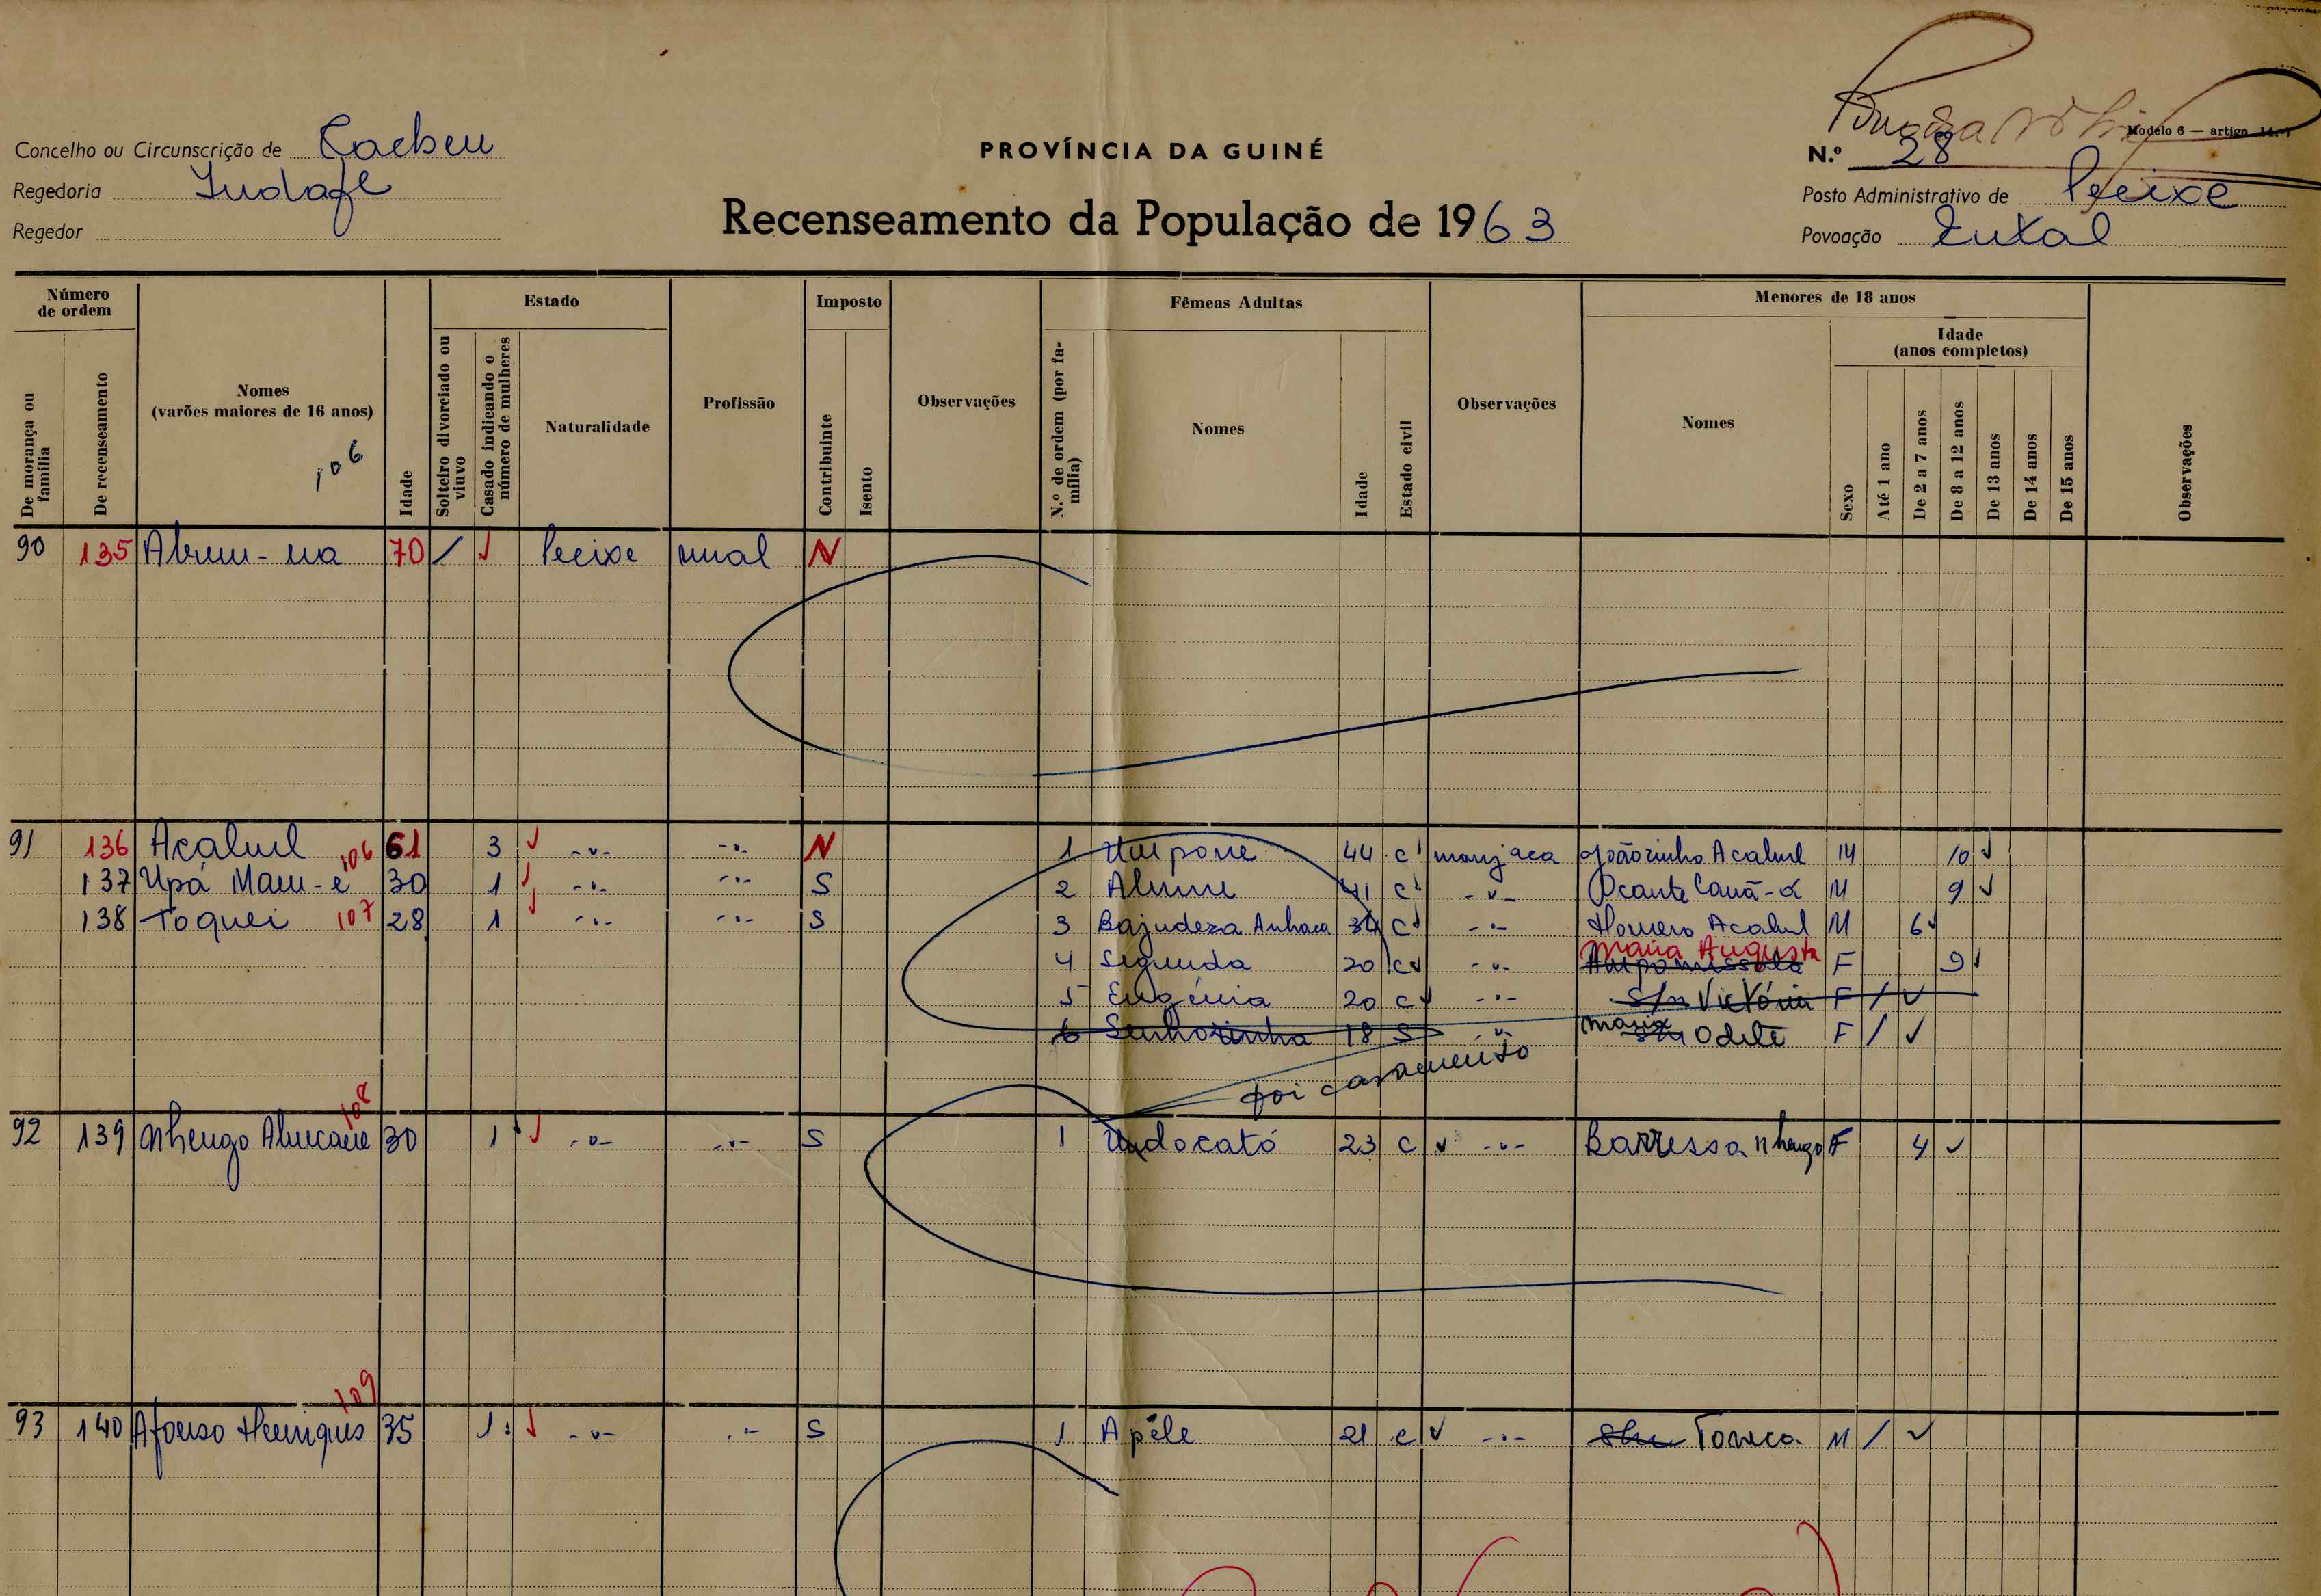 Modelo 6 — artigo 14.º
Concelho ou Circunscrição de Cacheu
PROVÍNCIA DA GUINÉ
N.º 28
Regedoria Indafe
Recenseamento da População de 1963
Posto Administrativo de Pecixe
Regedor
Povoação
Número de ordem
De morança ou família
De recenseamento
Nomes (varões maiores de 16 anos)
106
Idade
Estado
Solteiro divorciado ou viuvo
Casado indicando o número de mulheres
Naturalidade
Profissão
Imposto
Contribuinte
Isento
Observações
Fêmeas Adultas
N.º de ordem (por família)
Nomes
Idade
Estado civil
Observações
Menores de 18 anos
Nomes
Sexo
Idade (anos completos)
Até 1 ano
De 2 a 7 anos
De 8 a 12 anos
De 13 anos
De 14 anos
De 15 anos
Observações
90 135 70 / Pecixe N
91 136 Acalul 106 61 3 -"- -"- N 1 44 c manjaca Joãozinho Acalul M 10
137 Upá 30 1 -"- -"- S 2 41 c -"- Ocante M 9
138 Toquei 107 28 1 -"- -"- S 3 Bajudeza c -"- Homero Acalul M 6
4 Segunda 20 c -"- Maria Augusta F 9
5 Eugénia 20 c -"- S/n Victória F /
6 Senhorinha 18 S " Maria Odete F /
foi casamento
108
92 139 Nhengo 30 1 -"- -"- S 1 Undocató 23 c -"- Barressa Nhengo F 4
109
93 140 Afonso Henriques 35 1 -"- -"- S 1 Apéle 21 c -"- M /